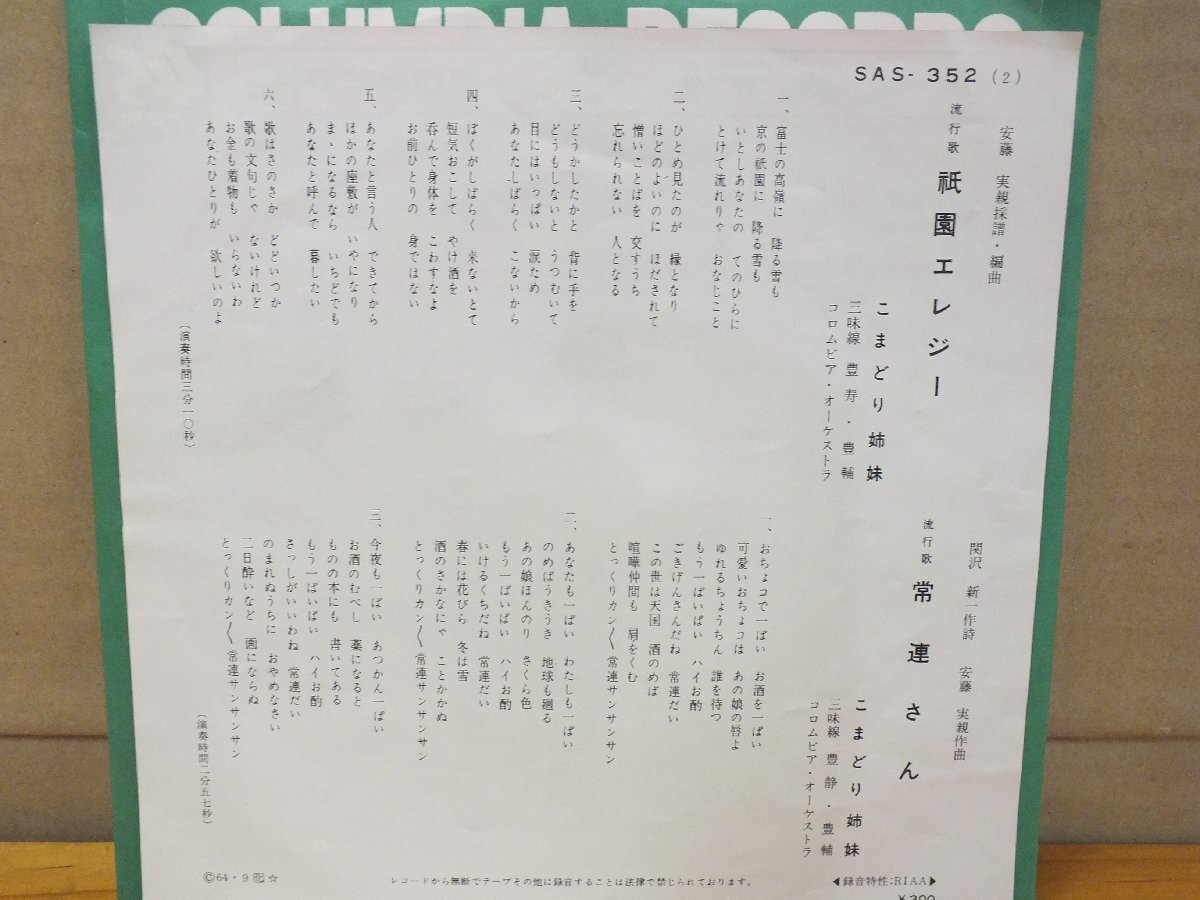 COLUMBIA RECORDS
SAS-352 (2)
安藤 実親採譜・編曲
流行歌 祇園エレジー
こまどり姉妹
三味線 豊寿・豊輔
コロムビア・オーケストラ
一、富士の高嶺に 降る雪も
京の祇園に 降る雪も
いとしあなたの てのひらに
とけて流れりゃ おなじこと
二、ひとめ見たのが 縁となり
ほどのよいのに ほだされて
憎いことばを 交すうち
忘れられない 人となる
三、どうかしたかと 背に手を
どうもしないと うつむいて
目にはいっぱい 涙ため
あなたしばらく こないから
四、ぼくがしばらく 来ないとて
短気おこして やけ酒を
呑んで身体を こわすなよ
お前ひとりの 身ではない
五、あなたと言う人 できてから
ほかの座敷が いやになり
まゝになるなら いちどでも
あなたと呼んで 暮したい
六、歌はさのさか どどいつか
歌の文句じゃ ないけれど
お金も着物も いらないわ
あなたひとりが 欲しいのよ
(演奏時間三分一〇秒)
関沢 新一作詩 安藤 実親作曲
流行歌 常連さん
こまどり姉妹
三味線 豊静・豊輔
コロムビア・オーケストラ
一、おちょコで一ぱい お酒を一ぱい
可愛いおちょコは あの娘の唇よ
ゆれるちょうちん 誰を待つ
もう一ぱいぱい ハイお酌
ごきげんさんだね 常連だい
この世は天国 酒のめば
喧嘩仲間も 肩をくむ
とっくりカン〳〵常連サンサンサン
二、あなたも一ぱい わたしも一ぱい
のめばうきうき 地球も廻る
あの娘ほんのり さくら色
もう一ぱいぱい ハイお酌
いけるくちだね 常連だい
春には花びら 冬は雪
酒のさかなにゃ ことかかぬ
とっくりカン〳〵常連サンサンサン
三、今夜も一ぱい あつかん一ぱい
お酒のむべし 薬になると
ものの本にも 書いてある
もう一ぱいぱい ハイお酌
さっしがいいわね 常連だい
のまれぬうちに おやめなさい
二日酔いなど 画にならぬ
とっくりカン〳〵常連サンサンサン
(演奏時間二分五七秒)
©64・9
☆
レコードから無断でテープその他に録音することは法律で禁じられております。
◀録音特性:RIAA▶
¥300